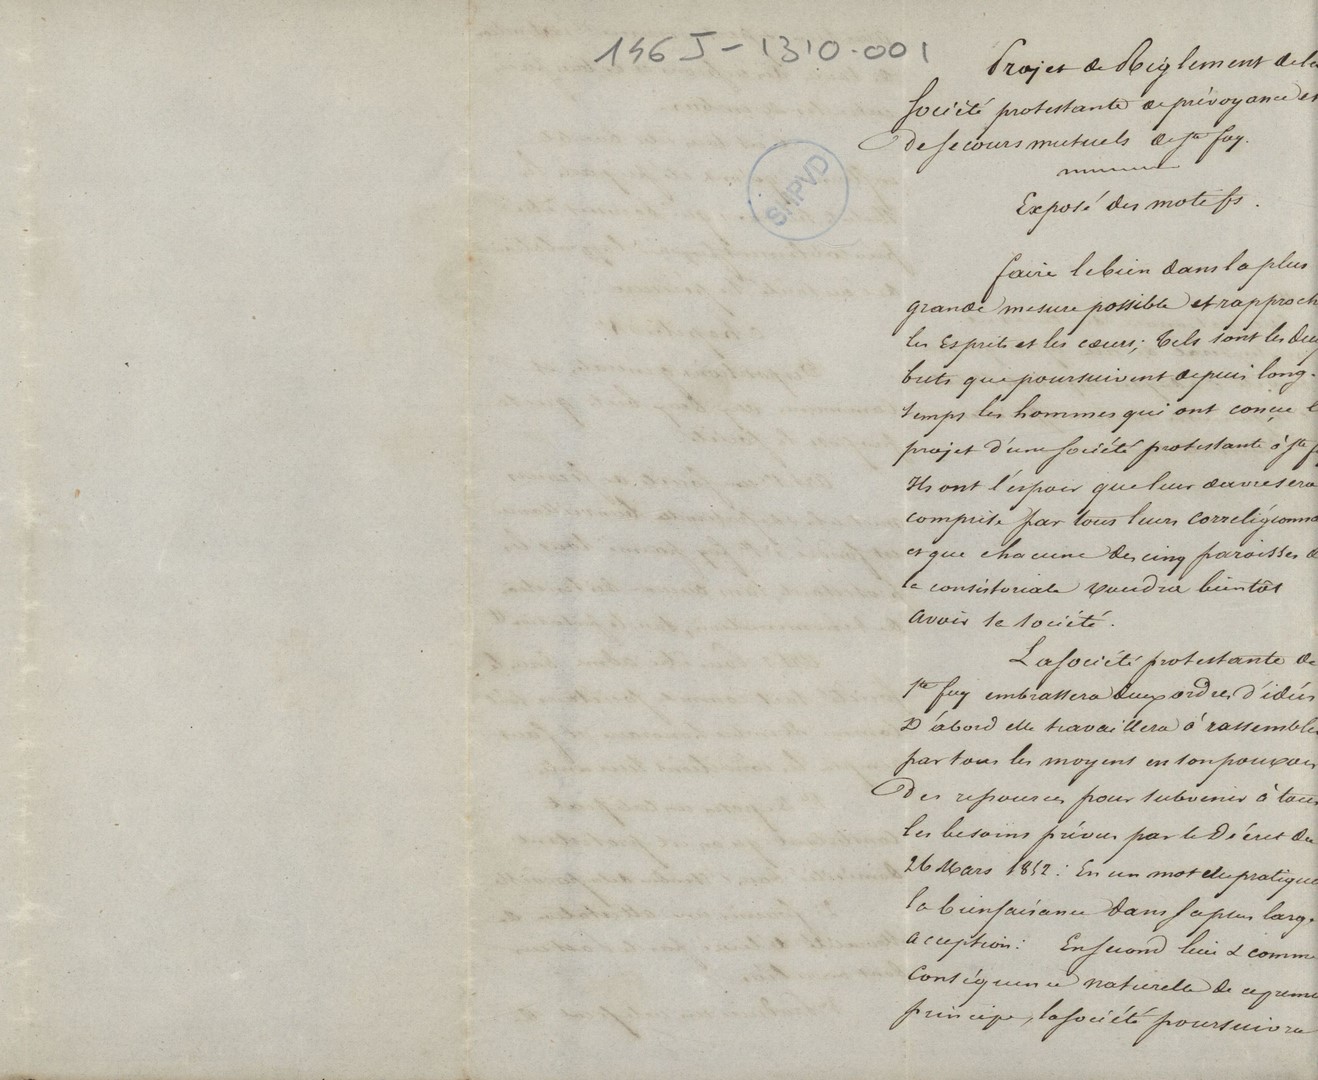 146 J - 1310.001
SHPVD
Projet de Réglement de la
Société protestante de prévoyance et
de secours mutuels de Ste foy.
Exposé des motifs.
faire le bien dans la plus
grande mesure possible et rapproch
les Esprits et les cœurs; tels sont les deu
buts que poursuivent depuis long-
temps les hommes qui ont conçue l
projet d'une Société protestante à Ste f
Ils ont l'espoir que leur œuvre sera
comprise par tous leurs correligionna
et que chacune des cinq paroisses d
la consistoriale voudra bientôt
avoir sa société.
La Société protestante de
Ste foy embrassera deux ordres d'idées
D'abord elle travaillera à rassemble
par tous les moyens en son pouvoir
des ressources pour subvenir à tous
les besoins prévus par le Décret du
26 Mars 1852: En un mot elle pratique
la bienfaisance dans sa plus large
acception: En second lieu & comme
conséquence naturelle de ce premie
principe, la Société poursuivra